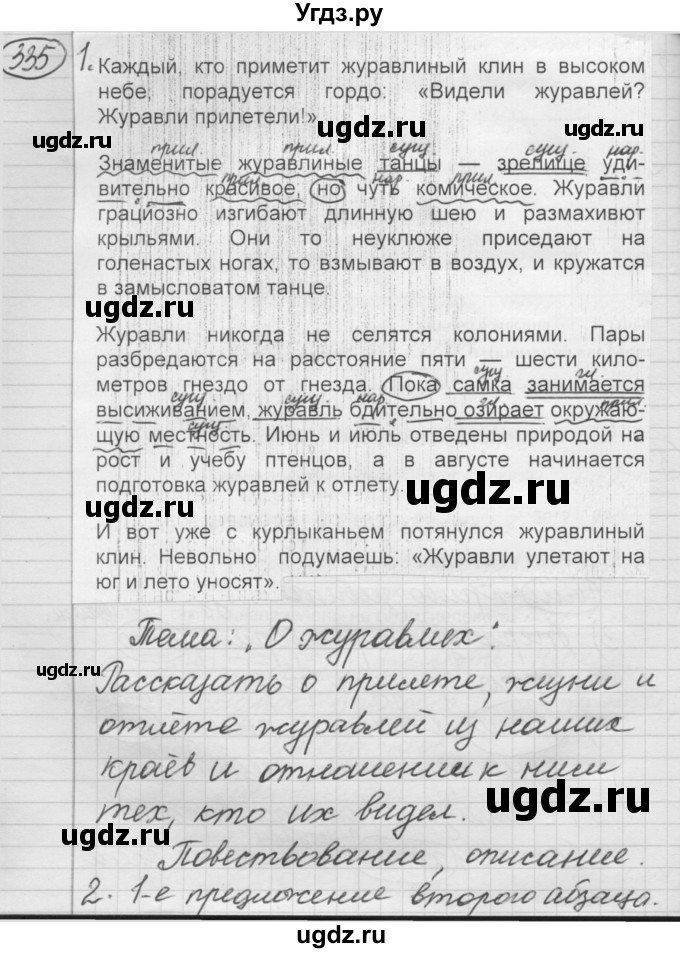 Угдз.ру
335 1.
Каждый, кто приметит журавлиный клин в высоком
небе, порадуется гордо: «Видели журавлей?
Журавли прилетели!»
ugdz.ru ugdz.ru
прил. прил. сущ. сущ. нар.
Знаменитые журавлиные танцы — зрелище уди-
прил. нар. прил.
вительно красивое, но чуть комическое. Журавли
грациозно изгибают длинную шею и размахивют
крыльями. Они то неуклюже приседают на
ugdz.ru
голенастых ногах, то взмывают в воздух, и кружатся
в замысловатом танце.
ugdz.ru
Журавли никогда не селятся колониями. Пары
ugdz.ru
разбредаются на расстояние пяти — шести кило-
сущ. гл.
метров гнездо от гнезда. Пока самка занимается
сущ. сущ. нар. гл. прил.
высиживанием, журавль бдительно озирает окружаю-
сущ.
щую местность. Июнь и июль отведены природой на
рост и учебу птенцов, а в августе начинается
подготовка журавлей к отлету.
ugdz.ru ugdz.ru
И вот уже с курлыканьем потянулся журавлиный
клин. Невольно подумаешь: «Журавли улетают на
юг и лето уносят».
ugdz.ru
Тема: „О журавлях“.
ugdz.ru
Рассказать о прилете, жизни и
отлёте журавлей из наших
краёв и отношении к ним
тех, кто их видел.
ugdz.ru
ugdz.ru
Повествование, описание.
2. 1-е предложение второго абзаца.
ugdz.ru
ugdz.ru